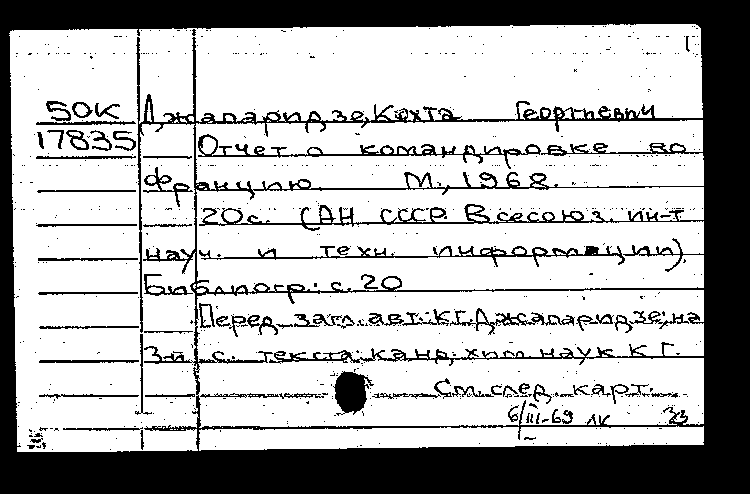 1
50К Джапаридзе, Кохта Георгиевич
17835 Отчет о командировке во
Францию. М., 1968.
20с. (АН СССР. Всесоюз. ин-т
науч. и техн. информации)
Библиогр.: с. 20
Перед загл. авт.: К.Г. Джапаридзе; на
3-й с. текста: канд. хим. наук К.Г.
См. след. карт.
6/III-69 ЛК 33